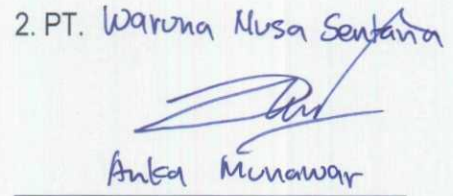 2. PT. Waruna Nusa Sentana
Anka Munawar